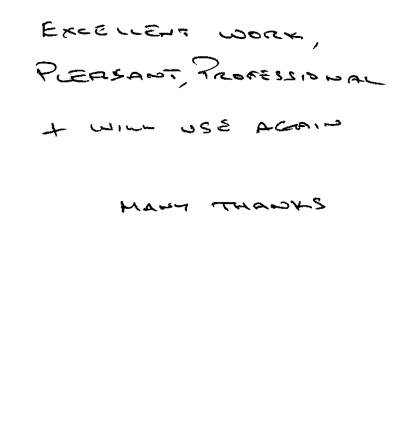 EXCELLENT WORK,
PLEASANT, PROFESSIONAL
+ WILL USE AGAIN
MANY THANKS